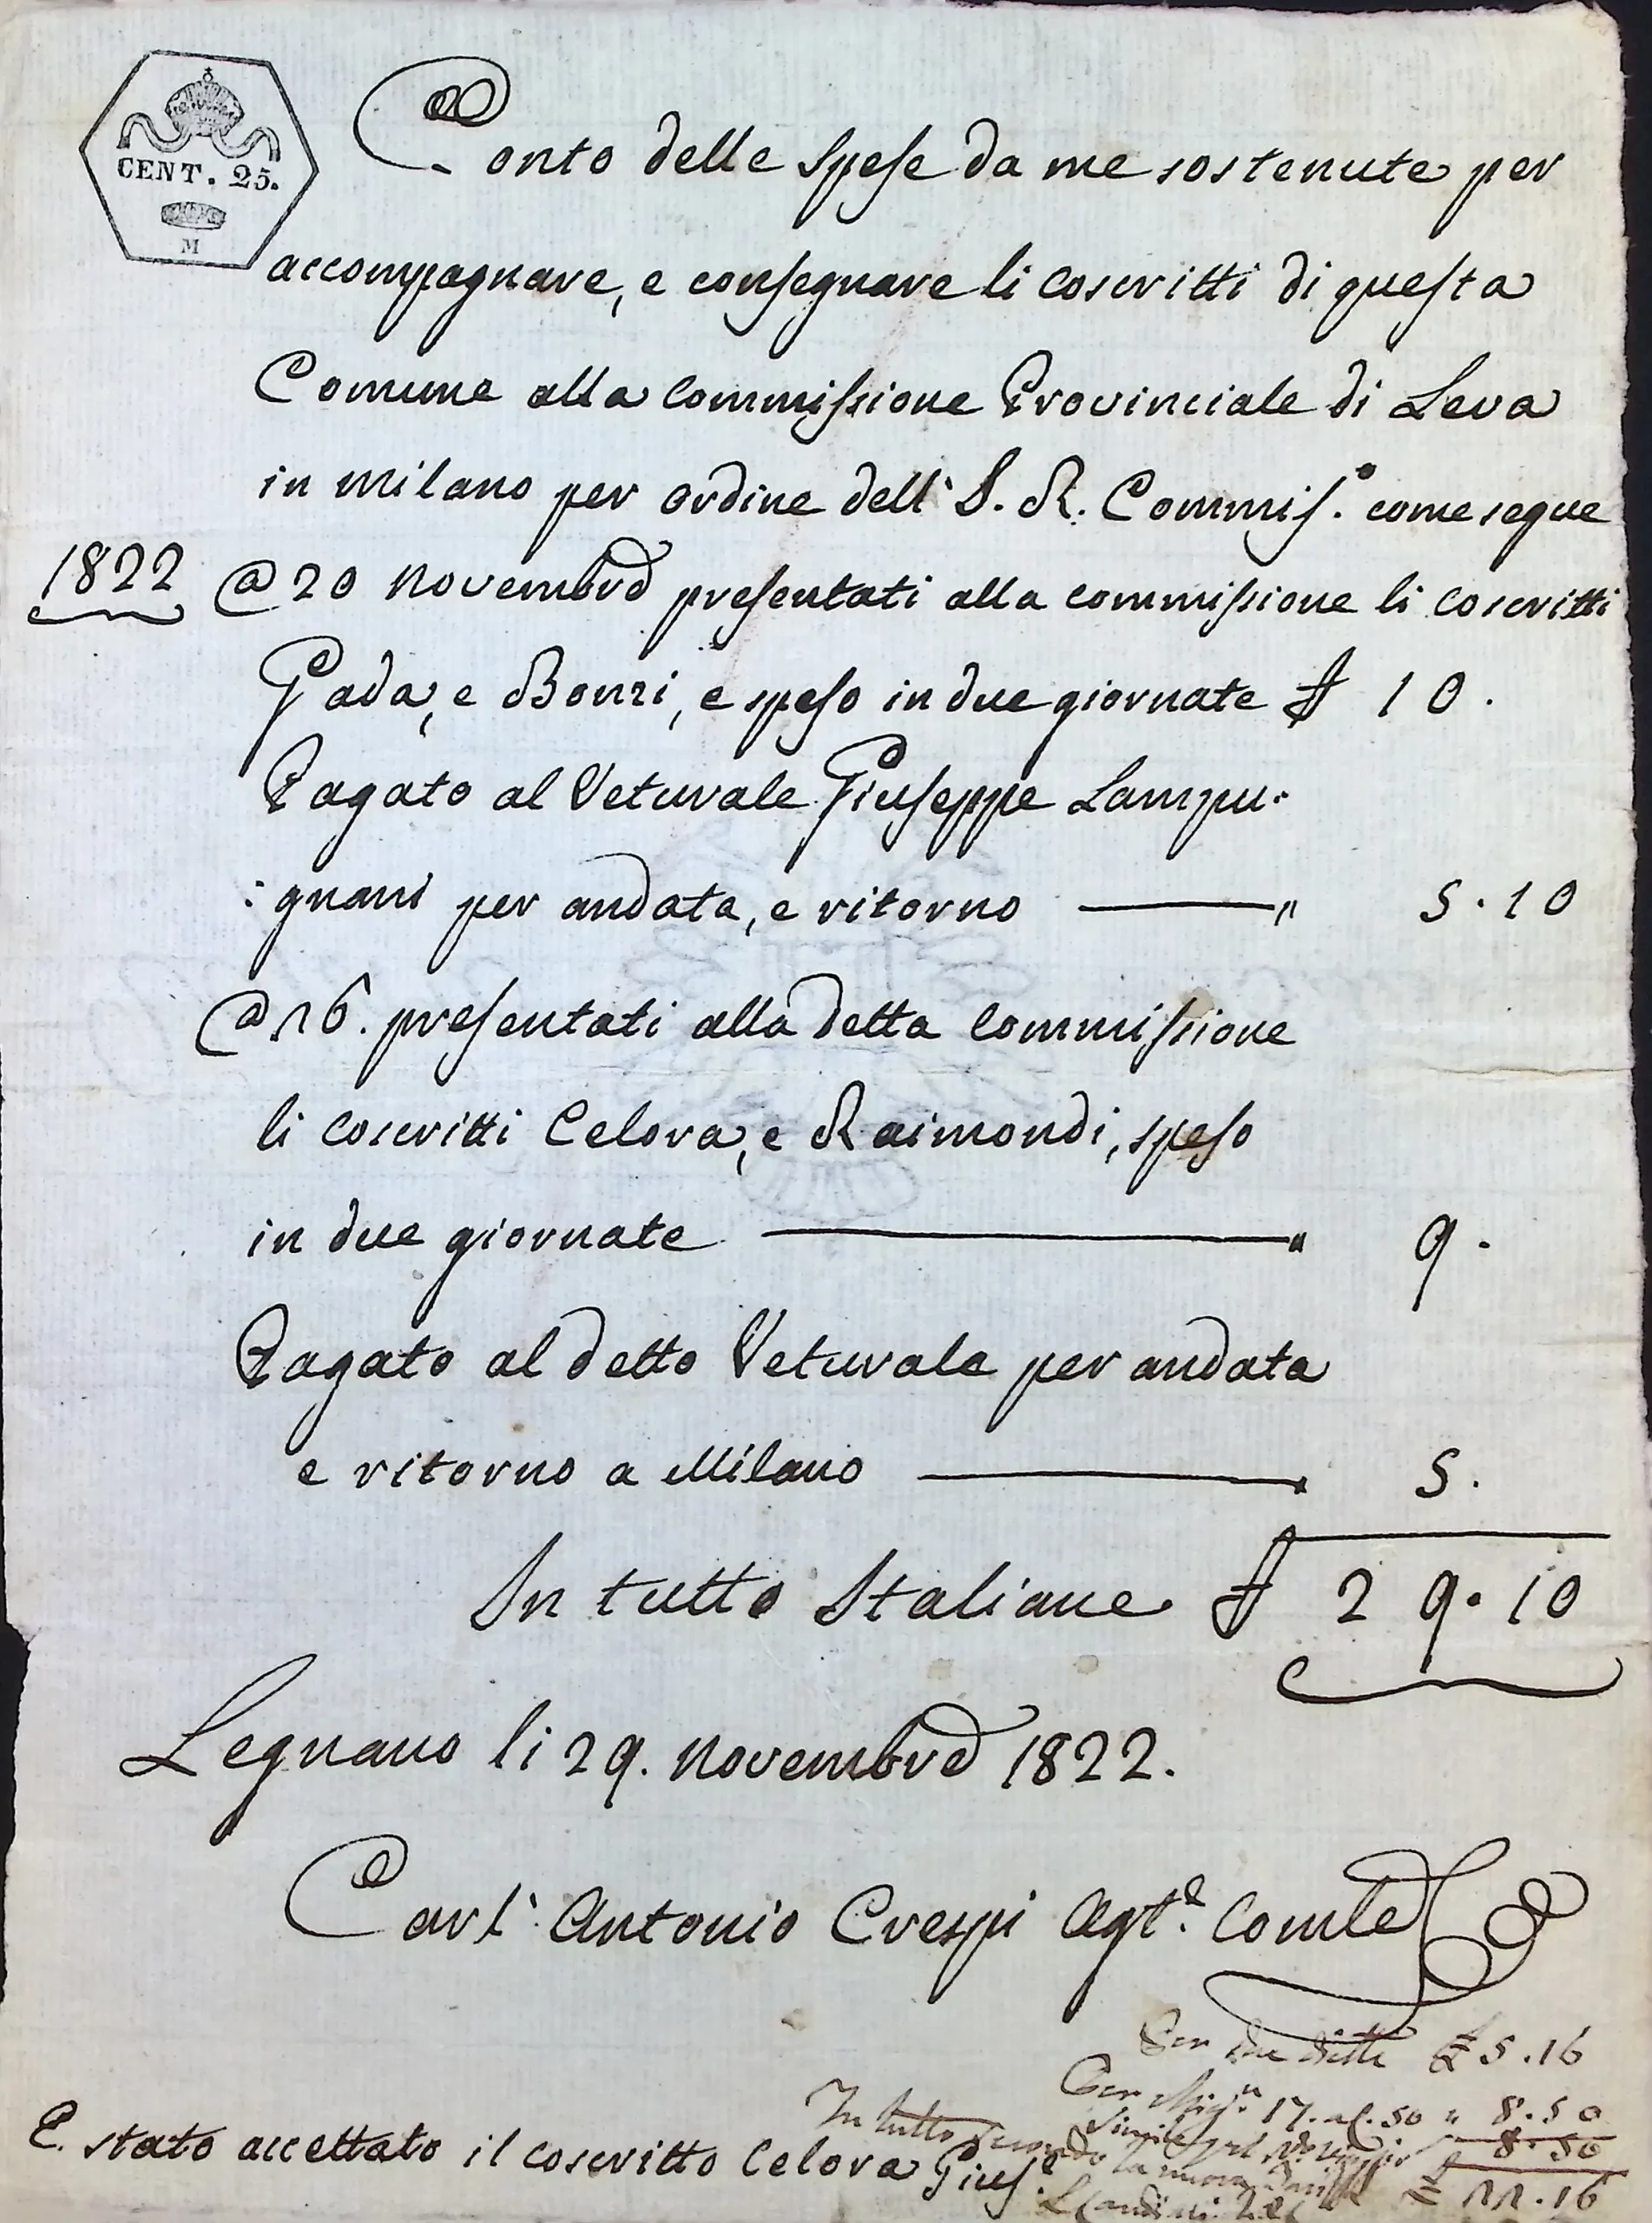 CENT. 25.
M
Conto delle spese da me sostenute per
accompagnare, e consegnare li coscritti di questa
Comune alla Commissione Provinciale di Leva
in Milano per ordine dell' I. R. Commis.º come segue
1822 @ 20 Novembre presentati alla commissione li coscritti
Gada, e Bonzi, e speso in due giornate £ 10.
Pagato al Veturale Giuseppe Lampu:
:gnani per andata, e ritorno — " 5.10
@ 26. presentati alla detta Commissione
li Coscritti Celora, e Raimondi, speso
in due giornate — " 9.
Pagato al detto Veturale per andata
e ritorno a Milano — " 5.
In tutto Italiane £ 29.10
Legnano li 29. Novembre 1822.
Carl' Antonio Crespi Agt.e Com.le
Per due diette £ 5.16
Per 17. al. 50 " 8.50
Simile pel 8.50
In tutto secondo la nuova £ 22.16
E. stato accettato il coscritto Celora Gius.e